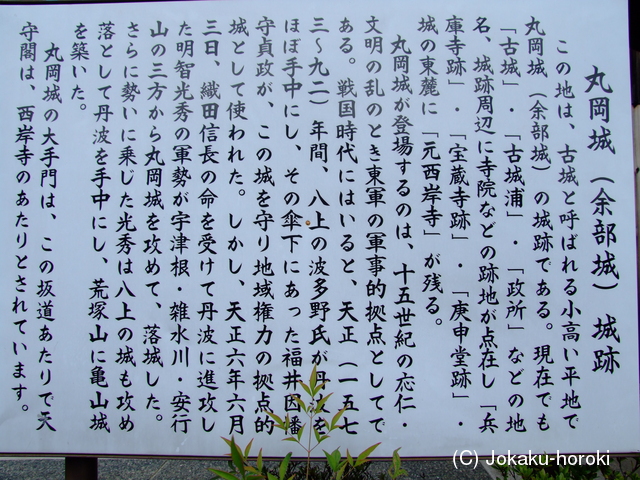 丸岡城（余部城）城跡
この地は、古城と呼ばれる小高い平地で
丸岡城（余部城）の城跡である。現在でも
「古城」・「古城浦」・「政所」などの地
名、城跡周辺に寺院などの跡地が点在し「兵
庫寺跡」・「宝蔵寺跡」・「庚申堂跡」・
城の東麓に「元西岸寺」が残る。
丸岡城が登場するのは、十五世紀の応仁・
文明の乱のとき東軍の軍事的拠点としてで
ある。戦国時代にはいると、天正（一五七
三〜九二）年間、八上の波多野氏が丹波を
ほぼ手中にし、その傘下にあった福井因幡
守貞政が、この城を守り地域権力の拠点的
城として使われた。しかし、天正六年六月
三日、織田信長の命を受けて丹波に進攻し
た明智光秀の軍勢が宇津根・雑水川・安行
山の三方から丸岡城を攻めて、落城した。
さらに勢いに乗じた光秀は八上の城も攻め
落として丹波を手中にし、荒塚山に亀山城
を築いた。
丸岡城の大手門は、この坂道あたりで天
守閣は、西岸寺のあたりとされています。
(C) Jokaku-horoki